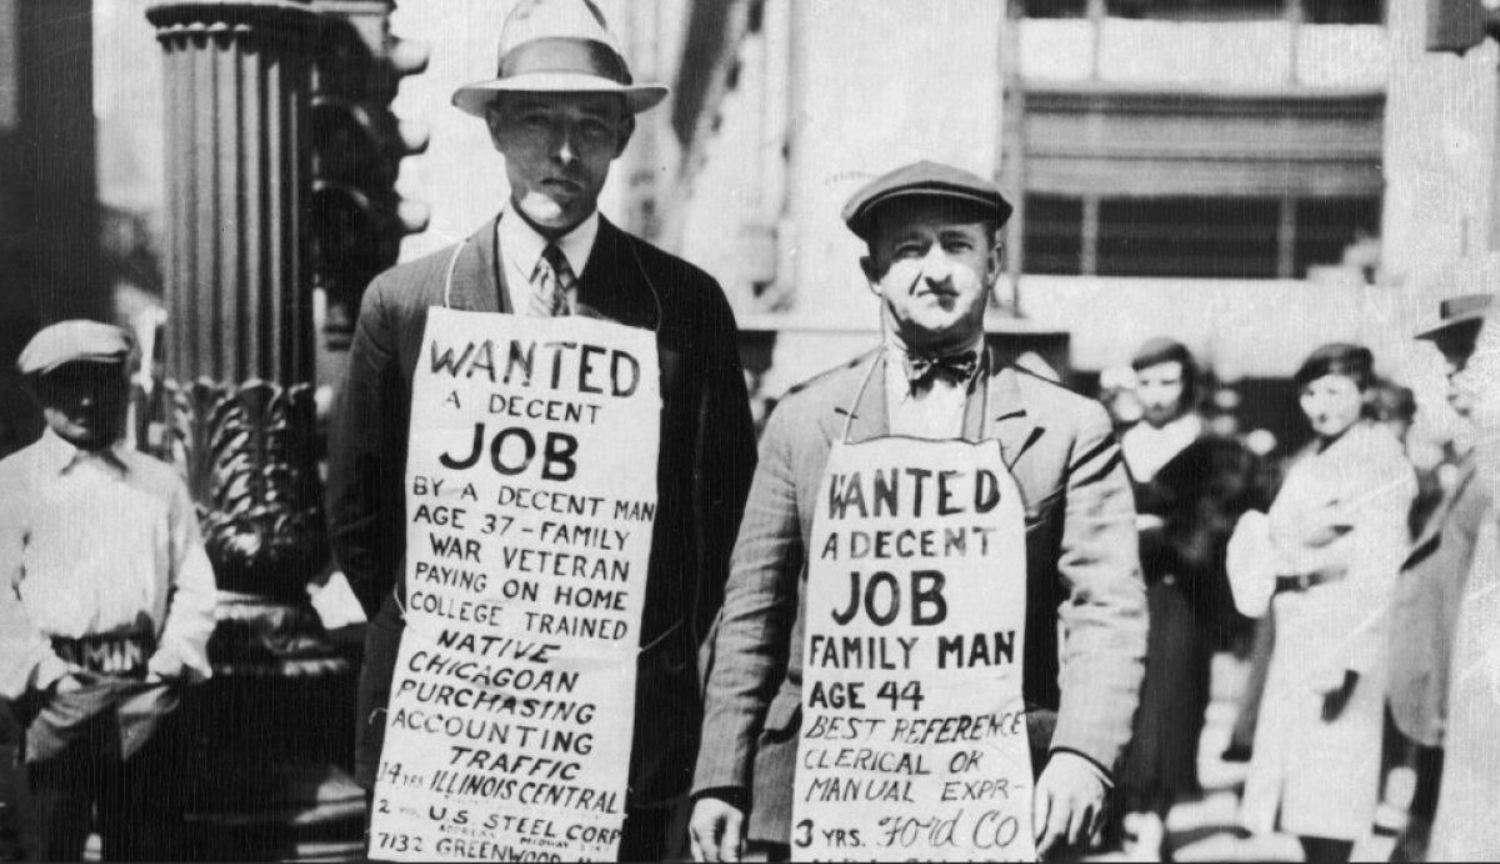 WANTED
A DECENT
JOB
BY A DECENT MAN
AGE 37-FAMILY
WAR VETERAN
PAYING ON HOME
COLLEGE TRAINED
NATIVE
CHICAGOAN
PURCHASING
ACCOUNTING
TRAFFIC
14 YRS ILLINOIS CENTRAL
2 U.S. STEEL CORP
ADDRESS
7132 GREENWOOD
WANTED
A DECENT
JOB
FAMILY MAN
AGE 44
BEST REFERENCE
CLERICAL OR
MANUAL EXPR-
3 YRS. Ford Co